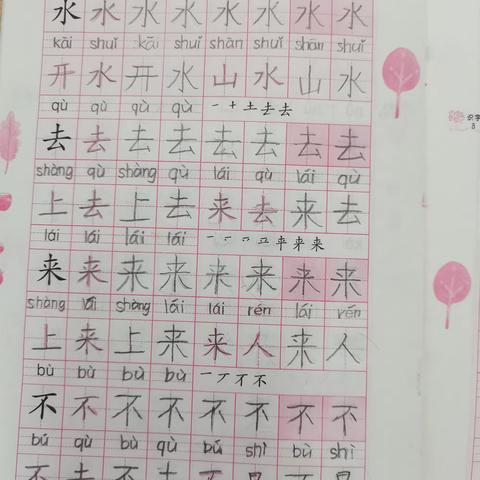 水 水 水 水 水 水 水 水
kāi shuǐ kāi shuǐ shān shuǐ shān shuǐ
开 水 开 水 山 水 山 水
qù qù qù qù 一 十 土 去 去
去 去 去 去 去 去 去 去
shàng qù shàng qù lái qù lái qù
上 去 上 去 来 去 来 去
lái lái lái lái
来 来 来 来 来 来 来 来
shàng lái shàng lái lái rén lái rén
上 来 上 来 来 人 来 人
bù bù bù bù 一 丆 不 不
不 不 不 不 不 不 不 不
bú qù bù qù bú shì bù shì
不 去 不 去 不 是 不 是
识字
8